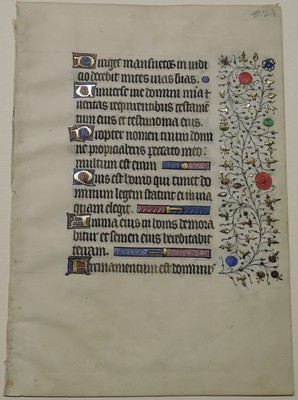 Diriget mansuetos in iudi
cio docebit mites uias suas.
Uniuerse uie domini mīa et
ueritas requirentibus testamē
tum eius et testimonia eius.
Propter nomen tuum domi
ne propiciaberis peccato meo:
multum est enim
Quis est homo qui timet do
minum legem statuit ei in uia
quam elegit.
Anima eius in bonis demora
bitur et semen eius hereditabit
terram.
Firmamentum est dominus